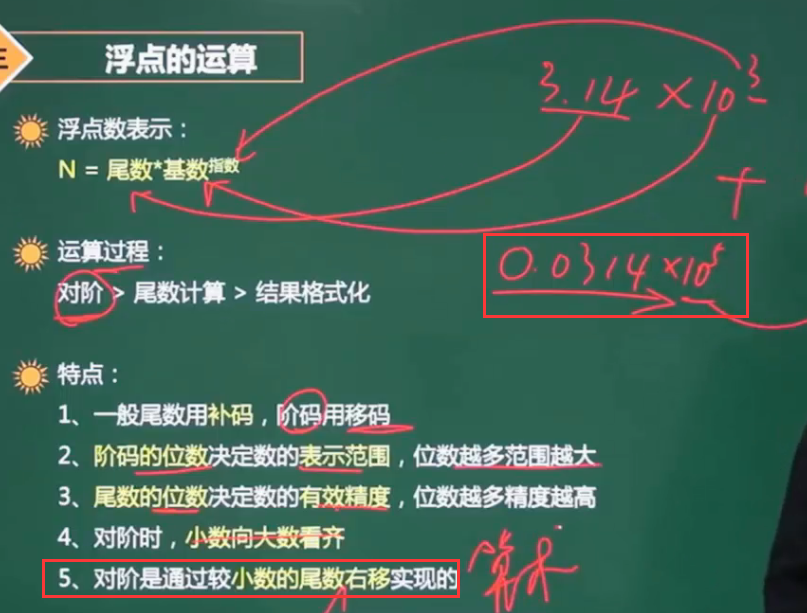 浮点的运算
3.14 × 10³
浮点数表示：
N = 尾数*基数^指数
+
运算过程：
0.0314 ×10⁵
对阶 > 尾数计算 > 结果格式化
特点：
1、一般尾数用补码，阶码用移码
2、阶码的位数决定数的表示范围，位数越多范围越大
3、尾数的位数决定数的有效精度，位数越多精度越高
4、对阶时，小数向大数看齐
5、对阶是通过较小数的尾数右移实现的
算术